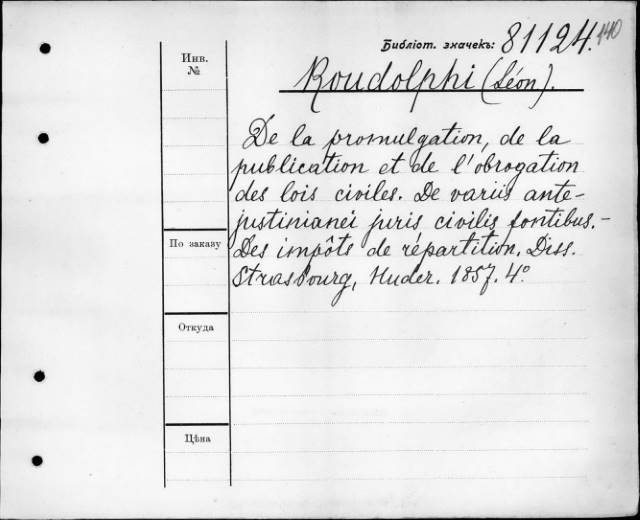 Библіот. значекъ: 81124.140
Инв.
№
Roudolphi (Léon).
De la promulgation, de la
publication et de l'obrogation
des lois civiles. De variis ante-
justinianei juris civilis fontibus.-
Des impôts de répartition. Diss.
Strasbourg, Huder. 1857. 4º
По заказу
Откуда
Цѣна